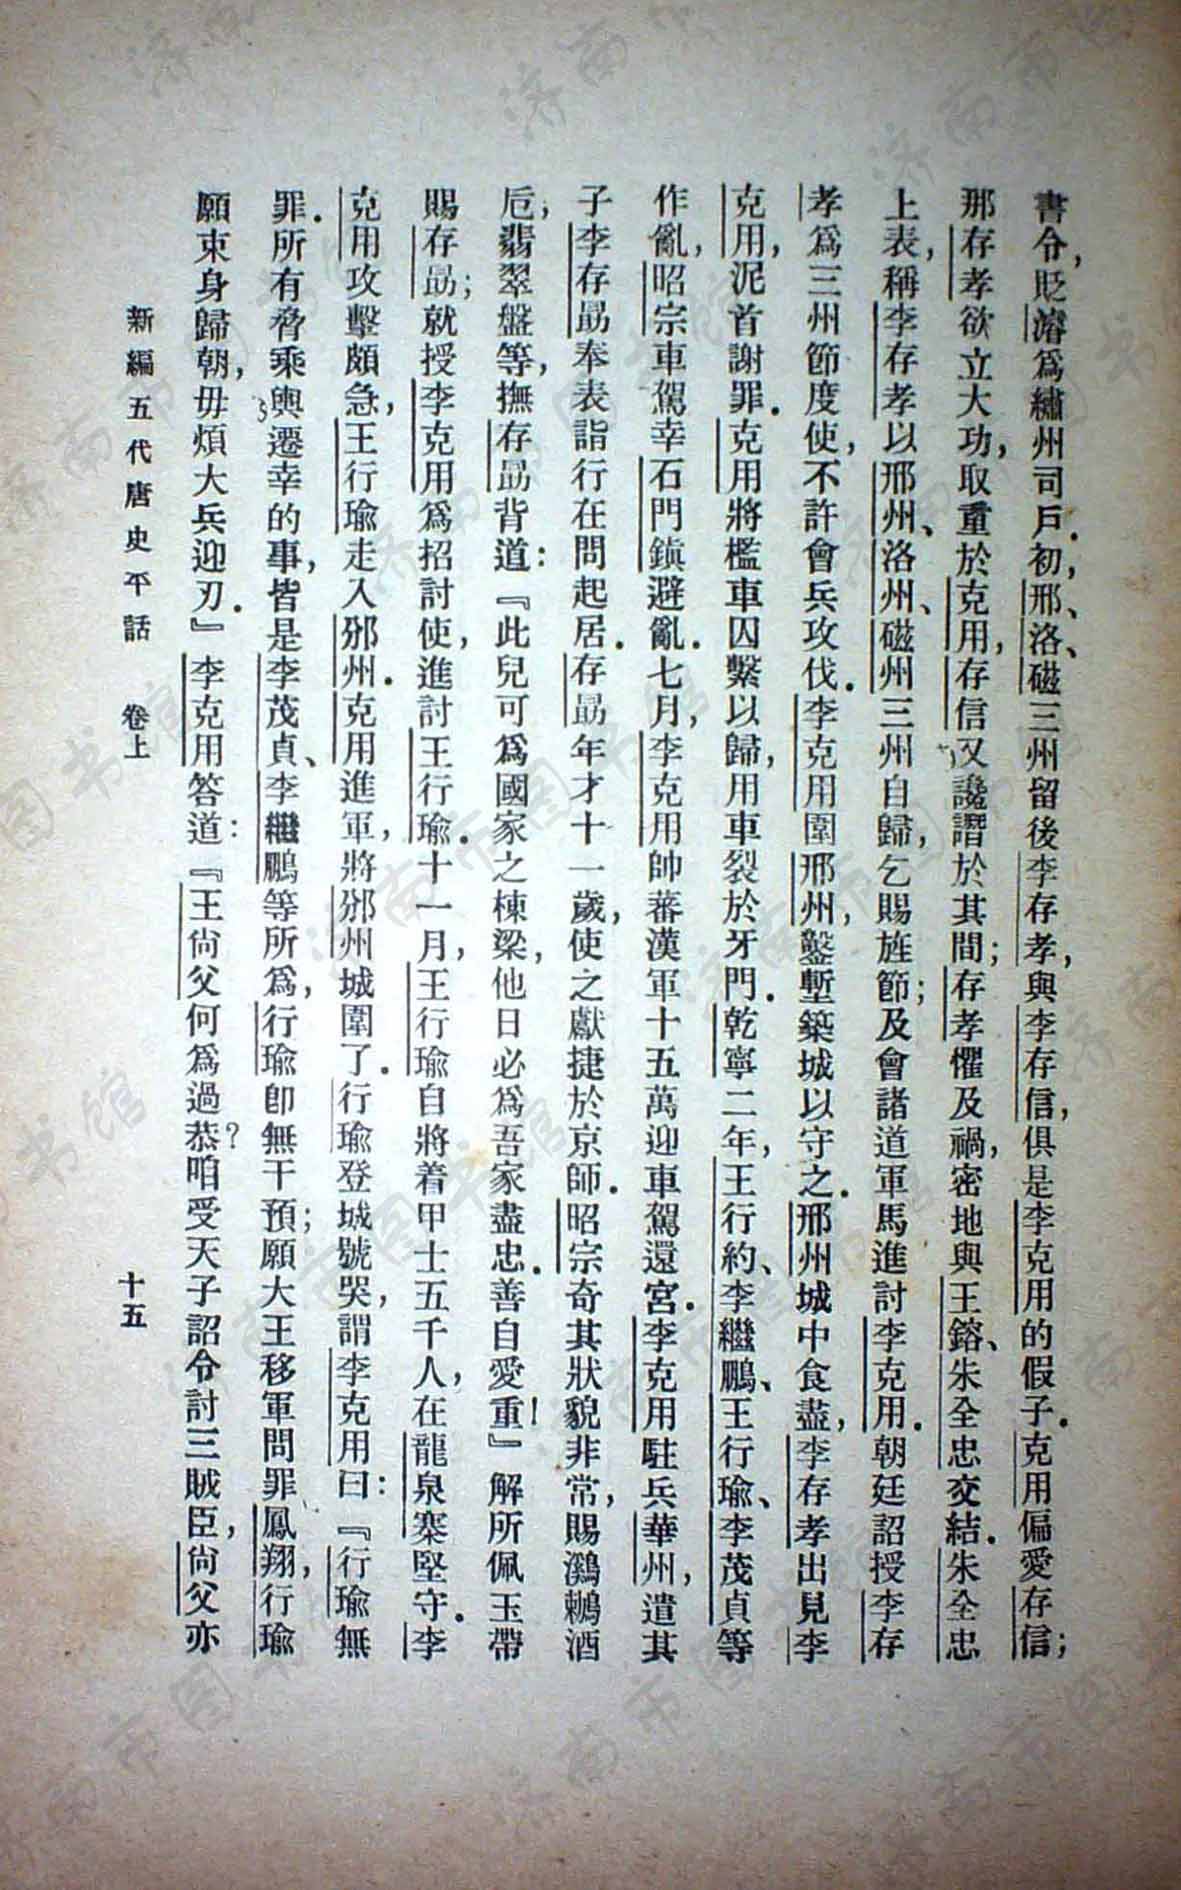 書令，貶濬爲繡州司戶．初，邢、洛、磁三州留後李存孝，與李存信，俱是李克用的假子．克用偏愛存信；
那存孝欲立大功，取重於克用，存信又讒譖於其間；存孝懼及禍，密地與王鎔、朱全忠交結．朱全忠
上表，稱李存孝以邢州、洛州、磁州三州自歸，乞賜旌節；及會諸道軍馬進討李克用．朝廷詔授李存
孝爲三州節度使，不許會兵攻伐．李克用圍邢州，鑿塹築城以守之．邢州城中食盡，李存孝出見李
克用，泥首謝罪．克用將檻車囚繫以歸，用車裂於牙門．乾寧二年，王行約、李繼鵬、王行瑜、李茂貞等
作亂，昭宗車駕幸石門鎮避亂．七月，李克用帥蕃漢軍十五萬迎車駕還宮．李克用駐兵華州，遣其
子李存勗奉表詣行在問起居．存勗年才十一歲，使之獻捷於京師．昭宗奇其狀貌非常，賜鸂鶒酒
巵，翡翠盤等，撫存勗背道：『此兒可爲國家之棟梁，他日必爲吾家盡忠．善自愛重！』解所佩玉帶
賜存勗；就授李克用爲招討使，進討王行瑜．十一月，王行瑜自將着甲士五千人，在龍泉寨堅守．李
克用攻擊頗急，王行瑜走入邠州．克用進軍，將邠州城圍了．行瑜登城號哭，謂李克用曰：『行瑜無
罪．所有脅乘輿遷幸的事，皆是李茂貞、李繼鵬等所爲，行瑜卽無干預；願大王移軍問罪鳳翔，行瑜
願束身歸朝，毋煩大兵迎刃．』李克用答道：『王尙父何爲過恭？咱受天子詔令討三賊臣，尙父亦
新編五代唐史平話　卷上　十五
济南市图书馆